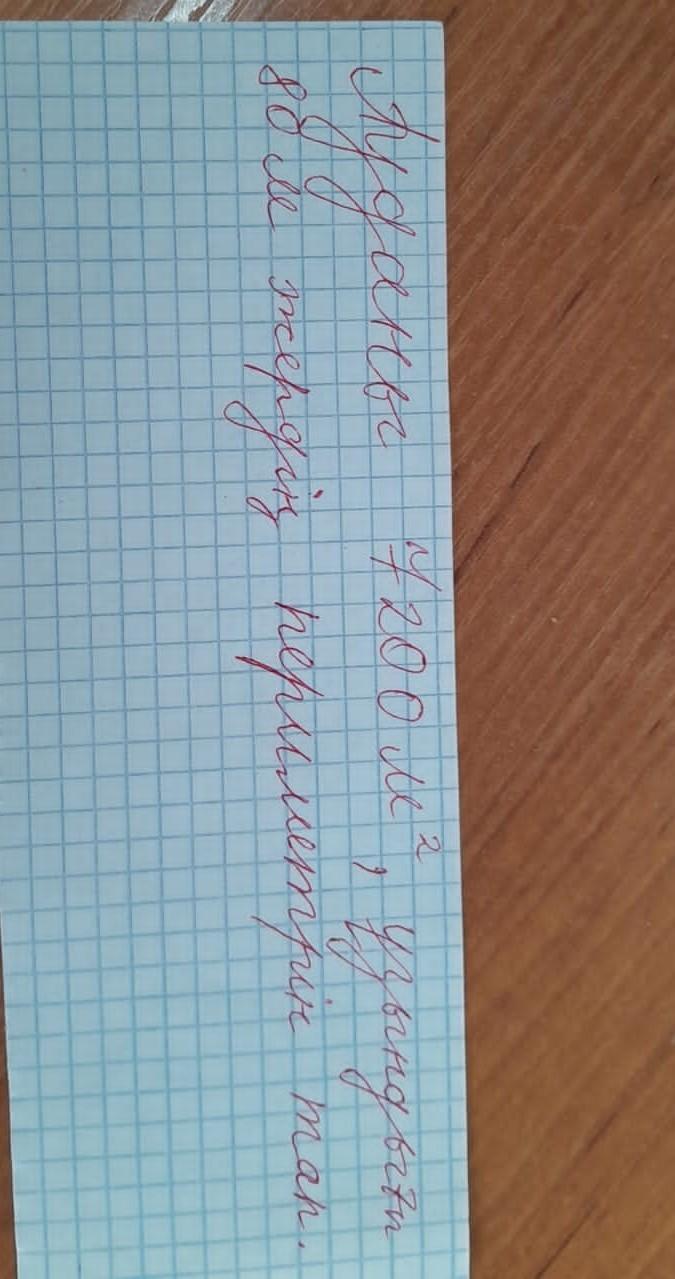 Ауданы 7200 м², ұзындығы
80 м жердің периметрін тап.